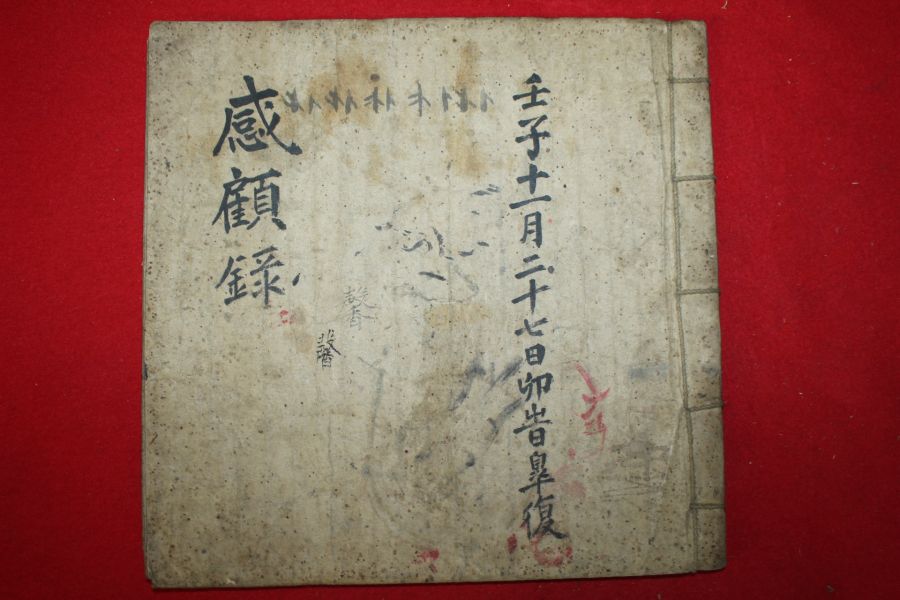 壬子十一月二十七日卯旹皐復
感顧錄
馨